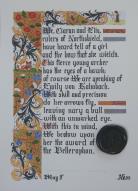 We, Caran and Elis,
rulers of Northshield,
have heard tell of a girl
and the boy that she wields.
This fierce young archer
has the eyes of a hawk;
of course we are speaking
of Emily von Kuhnbach.
With skill and precision
do her arrows fly,
leaving many a bull
with an unmarked eye.
With this in mind,
We bestow upon
her the award of
the Bellerophon.
May 5